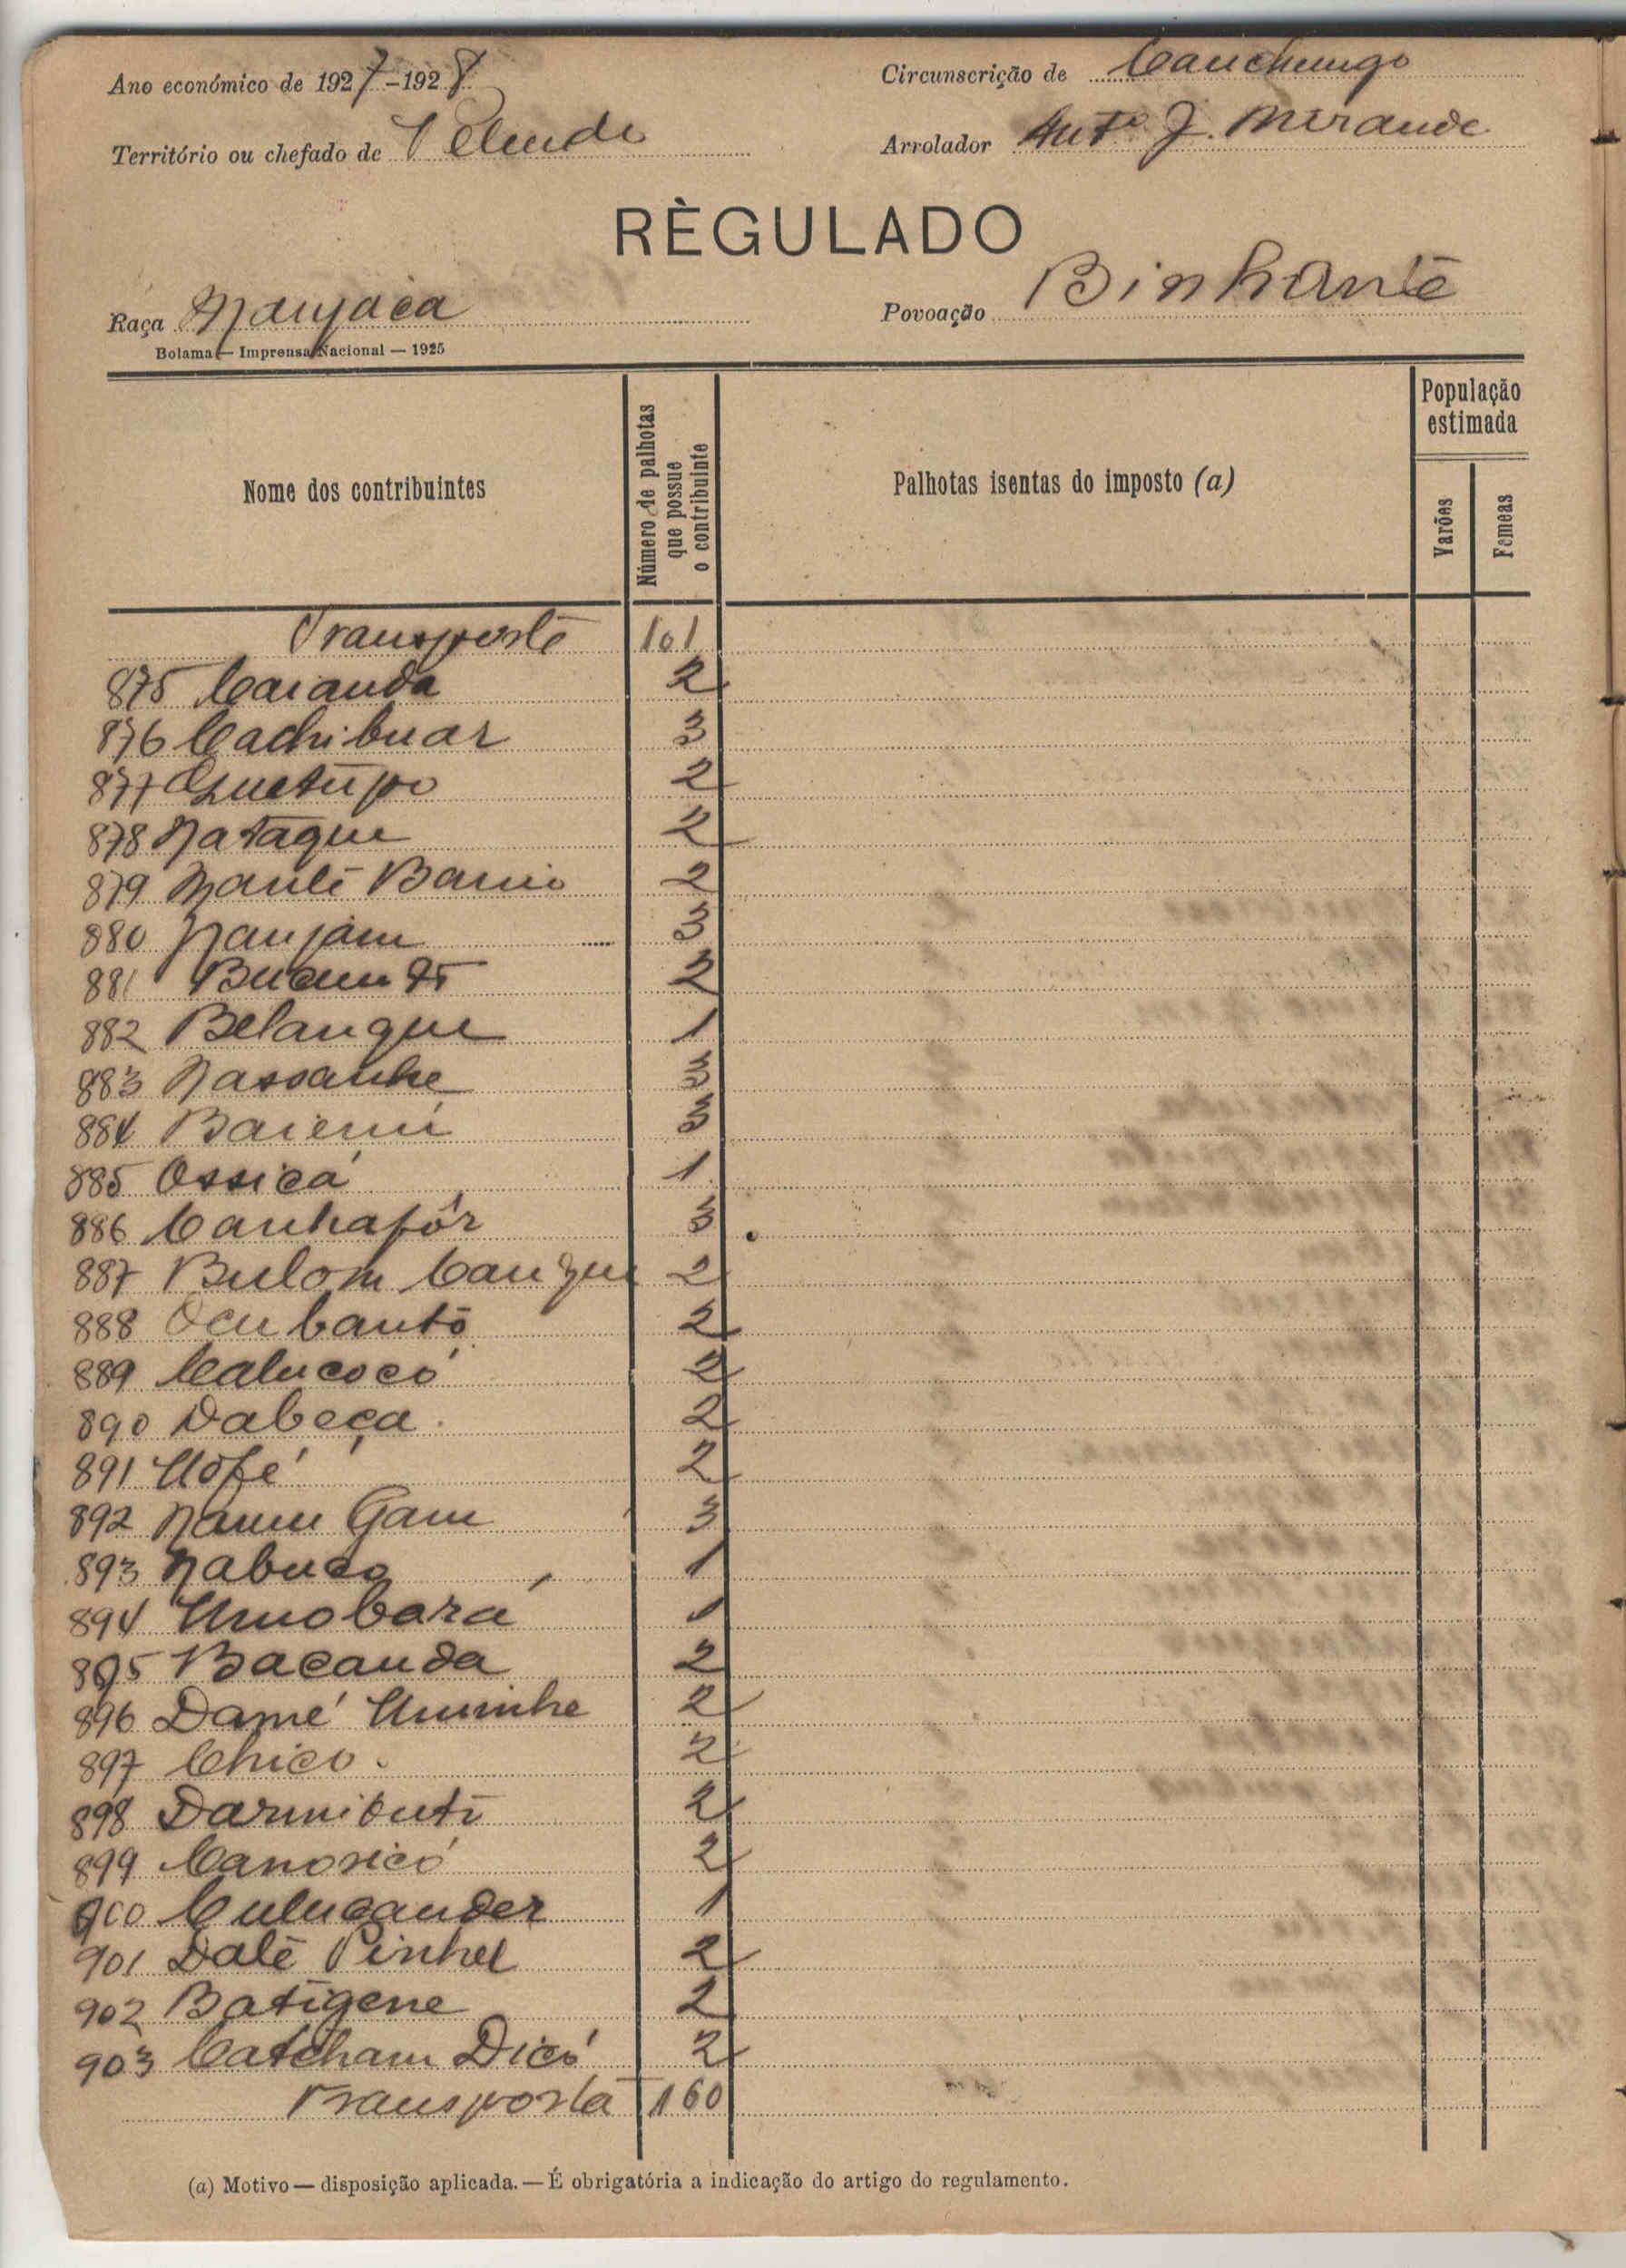 Ano económico de 1927-1928
Circunscrição de Canchungo
Território ou chefado de Pelundo
Arrolador Antº J. Mirande
RÈGULADO
Raça Manjaca
Povoação Binhante
Bolama — Imprensa Nacional — 1925
Nome dos contribuintes
Número de palhotas que possue o contribuinte
Palhotas isentas do imposto (a)
População estimada
Varões
Femeas
Transporte 101
875 Caianda 2
876 Cachibuar 3
877 2
878 Nataque 2
879 Nantê Banio 2
880 Nanjam 3
881 2
882 Belanque 1
883 Nassanhe 3
884 Baiemí 3
885 Ossicá 1
886 Canhafôr 3
887 Bulom Cangue 2
888 Ocubantô 2
889 Calucocó 2
890 Dabeça 2
891 Uofé 2
892 Namu Gam 3
893 Nabuco 1
894 Umobará 1
895 Bacanda 2
896 Damé Uminhe 2
897 Chico 2
898 2
899 Canosicó 2
900 Culucander 1
901 Datê Pinhel 2
902 Batigene 2
903 Catcham Dicó 2
Transporta 160
(a) Motivo — disposição aplicada. — É obrigatória a indicação do artigo do regulamento.